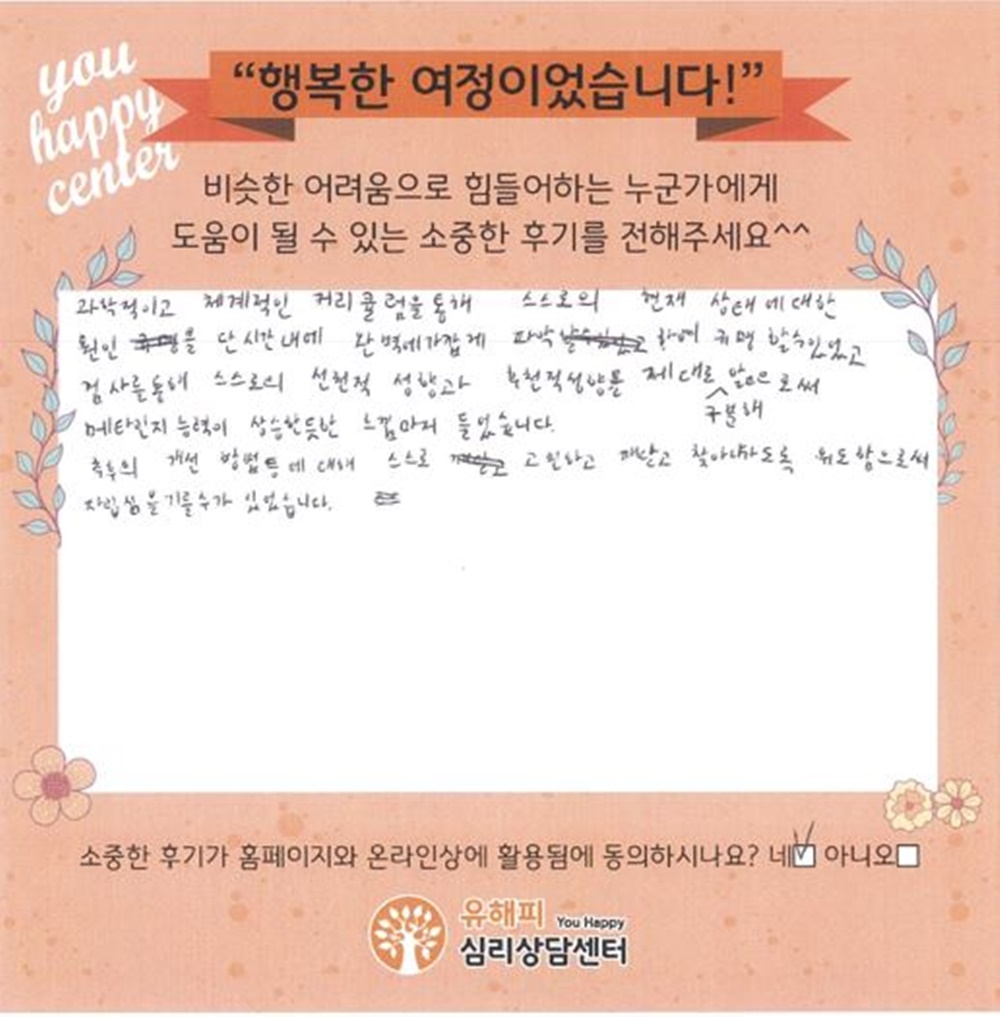 you
happy
center
“행복한 여정이었습니다!”
비슷한 어려움으로 힘들어하는 누군가에게
도움이 될 수 있는 소중한 후기를 전해주세요^^
과학적이고 체계적인 커리큘럼을통해 스스로의 현재 상태에대한
원인 을 단시간내에 완벽에가깝게 파악 하여 규명 할수있었고
검사를통해 스스로의 선천적 성향과 후천적성향을 제대로 구분해 앎으로써
메타인지능력이 상승한듯한 느낌마저 들었습니다.
추후의 개선 방법등에대해 스스로 고민하고 깨닫고 찾아나가도록 유도함으로써
자립심을기를수가 있었습니다.
소중한 후기가 홈페이지와 온라인상에 활용됨에 동의하시나요? 네 아니오
유해피 You Happy
심리상담센터